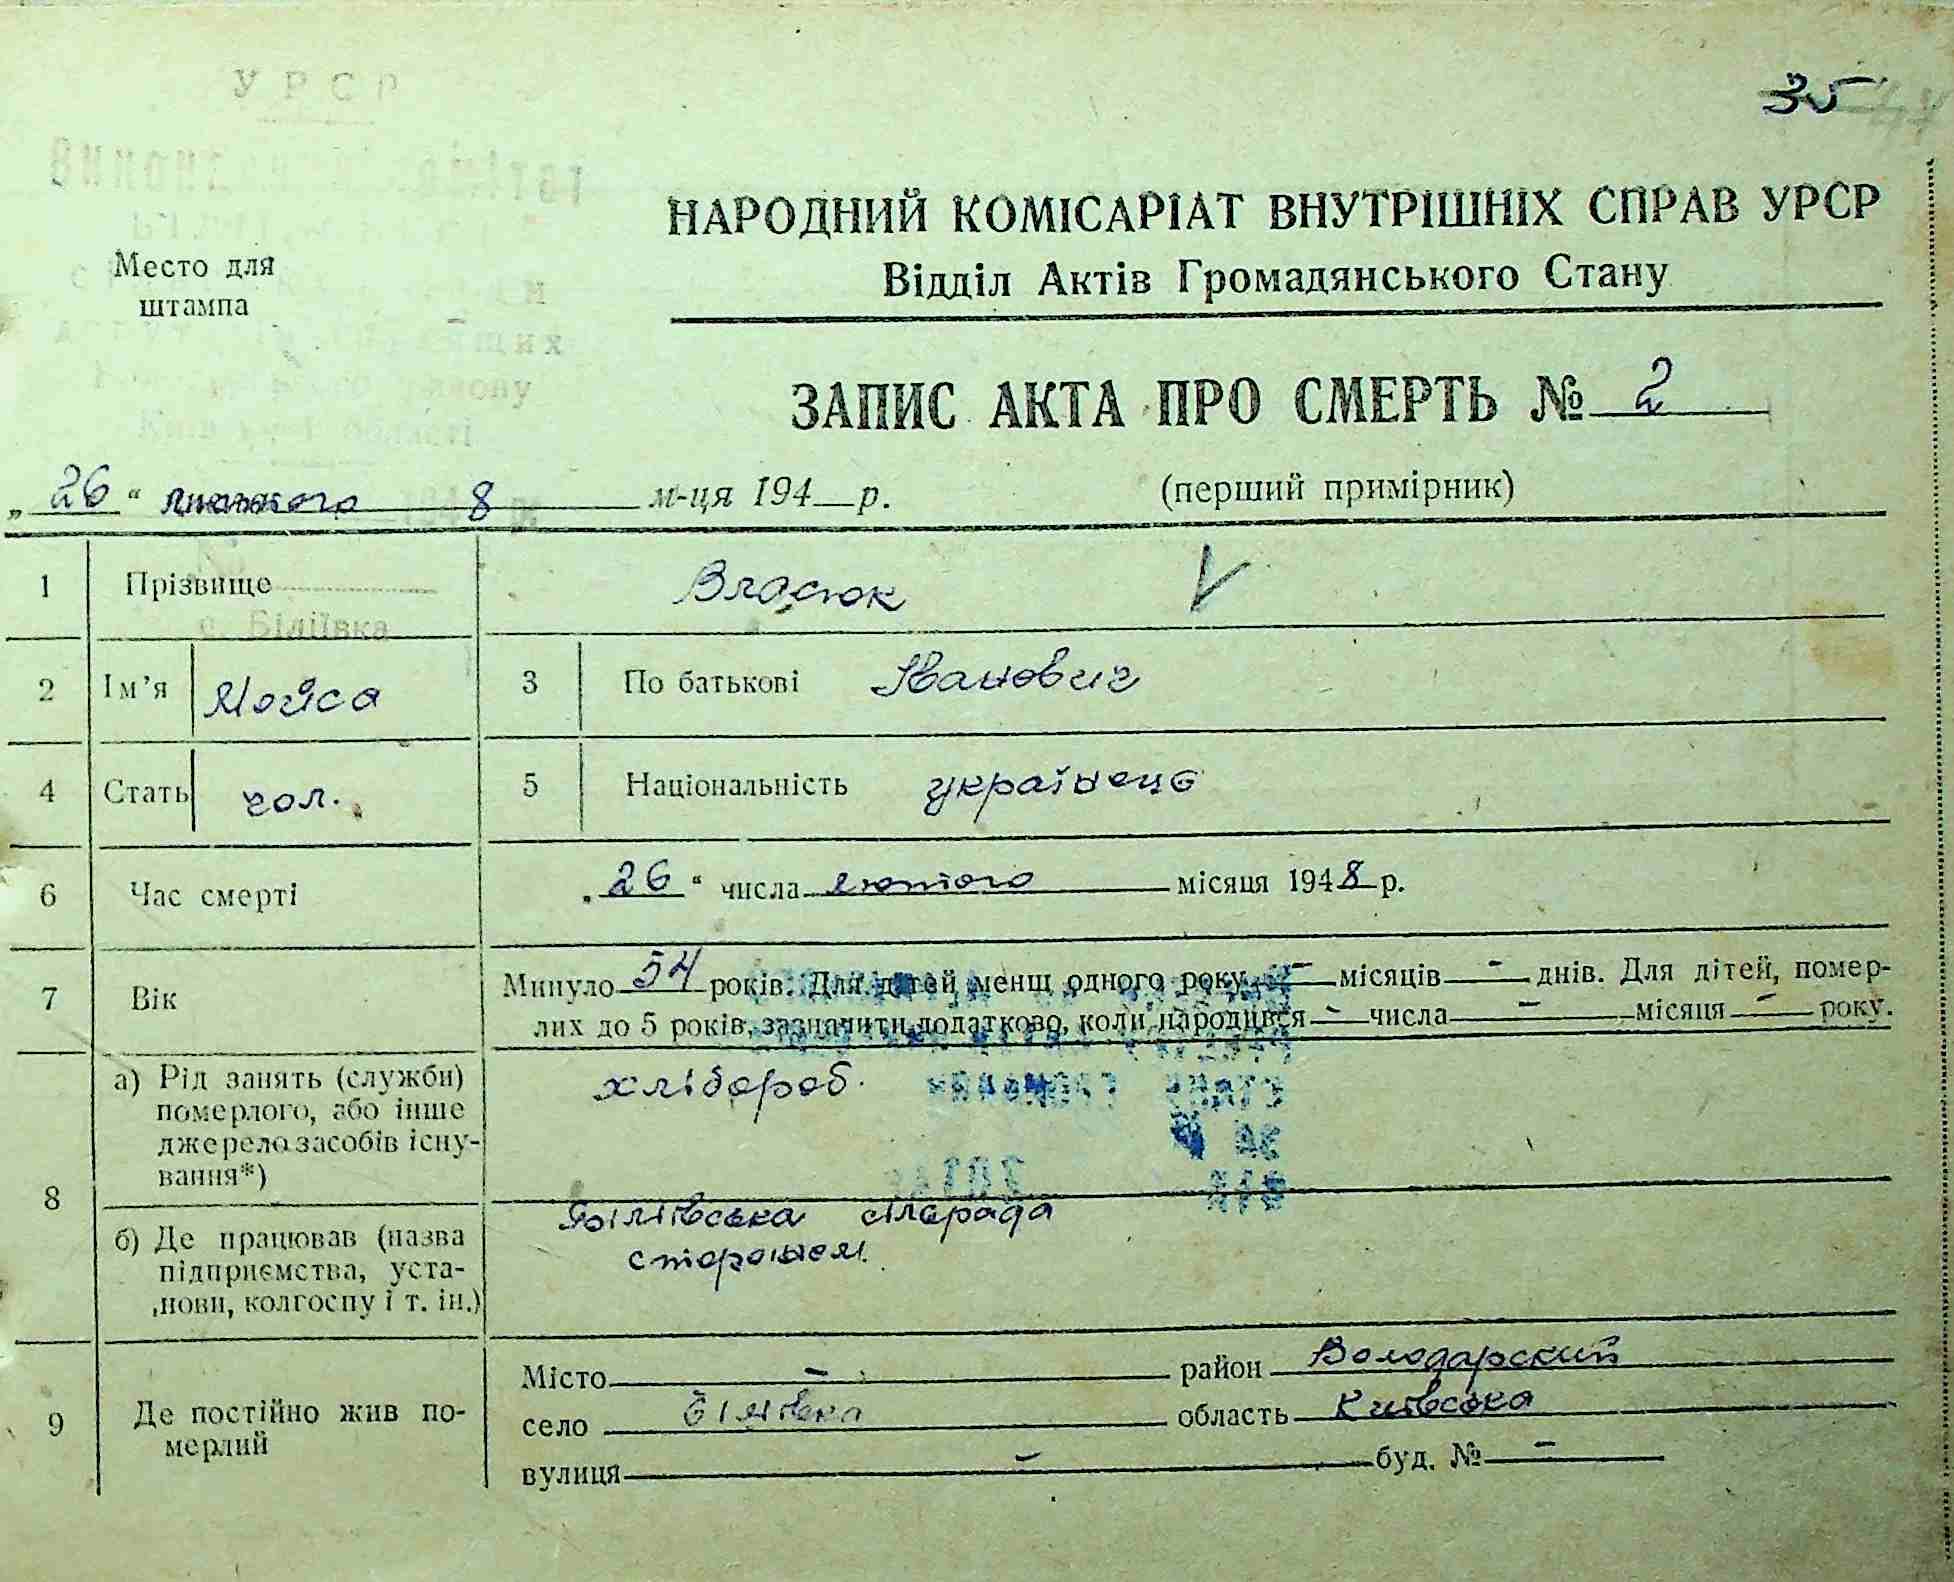 УРСР
35
НАРОДНИЙ КОМІСАРІАТ ВНУТРІШНІХ СПРАВ УРСР
Відділ Актів Громадянського Стану
Место для
штампа
ЗАПИС АКТА ПРО СМЕРТЬ № 2
„26“ лютого 8 м-ця 194 р.
(перший примірник)
1 Прізвище Власюк V
с. Біліївка
2 Ім’я Мойса 3 По батькові Іванович
4 Стать чол. 5 Національність українець
6 Час смерті „26“ числа лютого місяця 1948 р.
7 Вік Минуло 54 років. Для дітей менш одного року - місяців - днів. Для дітей, помер-
лих до 5 років, зазначити додатково, коли народився - числа - місяця - року.
8 а) Рід занять (служби)
померлого, або інше
джерело засобів існу-
вання*)
хлібороб.
б) Де працював (назва
підприємства, уста-
нови, колгоспу і т. ін.)
Біліївська сільрада
сторожем.
9 Де постійно жив по-
мерлий
Місто - район Володарский
село Біліївка область Київська
вулиця - буд. № -